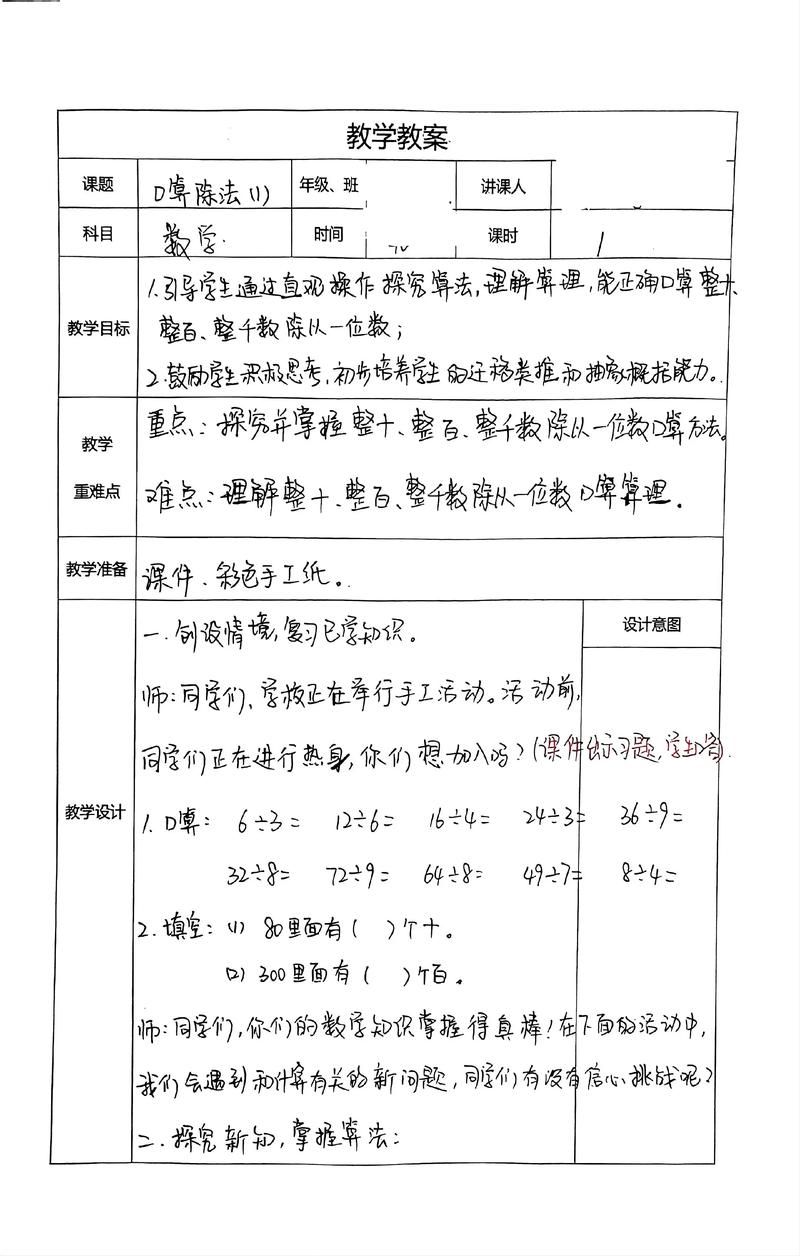 教学教案
课题 口算除法(1) 年级、班 讲课人
科目 数学. 时间 课时 1
教学目标
1.引导学生通过直观操作探究算法,理解算理,能正确口算整十、
整百、整千数除以一位数;
2.鼓励学生积极思考,初步培养学生的迁移类推和抽象概括能力。
教学
重难点
重点:探究并掌握整十、整百、整千数除以一位数口算方法。
难点:理解整十、整百、整千数除以一位数口算算理。
教学准备 课件、彩色手工纸。
教学设计
设计意图
一.创设情境,复习已学知识。
师:同学们,学校正在举行手工活动。活动前,
同学们正在进行热身,你们想加入吗?(课件出示习题,学生口答).
1.口算: 6÷3= 12÷6= 16÷4= 24÷3= 36÷9=
32÷8= 72÷9= 64÷8= 49÷7= 8÷4=
2.填空: (1) 80里面有( )个十。
(2) 300里面有( )个百。
师:同学们,你们的数学知识掌握得真棒!在下面的活动中,
我们会遇到和计算有关的新问题,同学们有没有信心挑战呢?
二.探究新知,掌握算法: